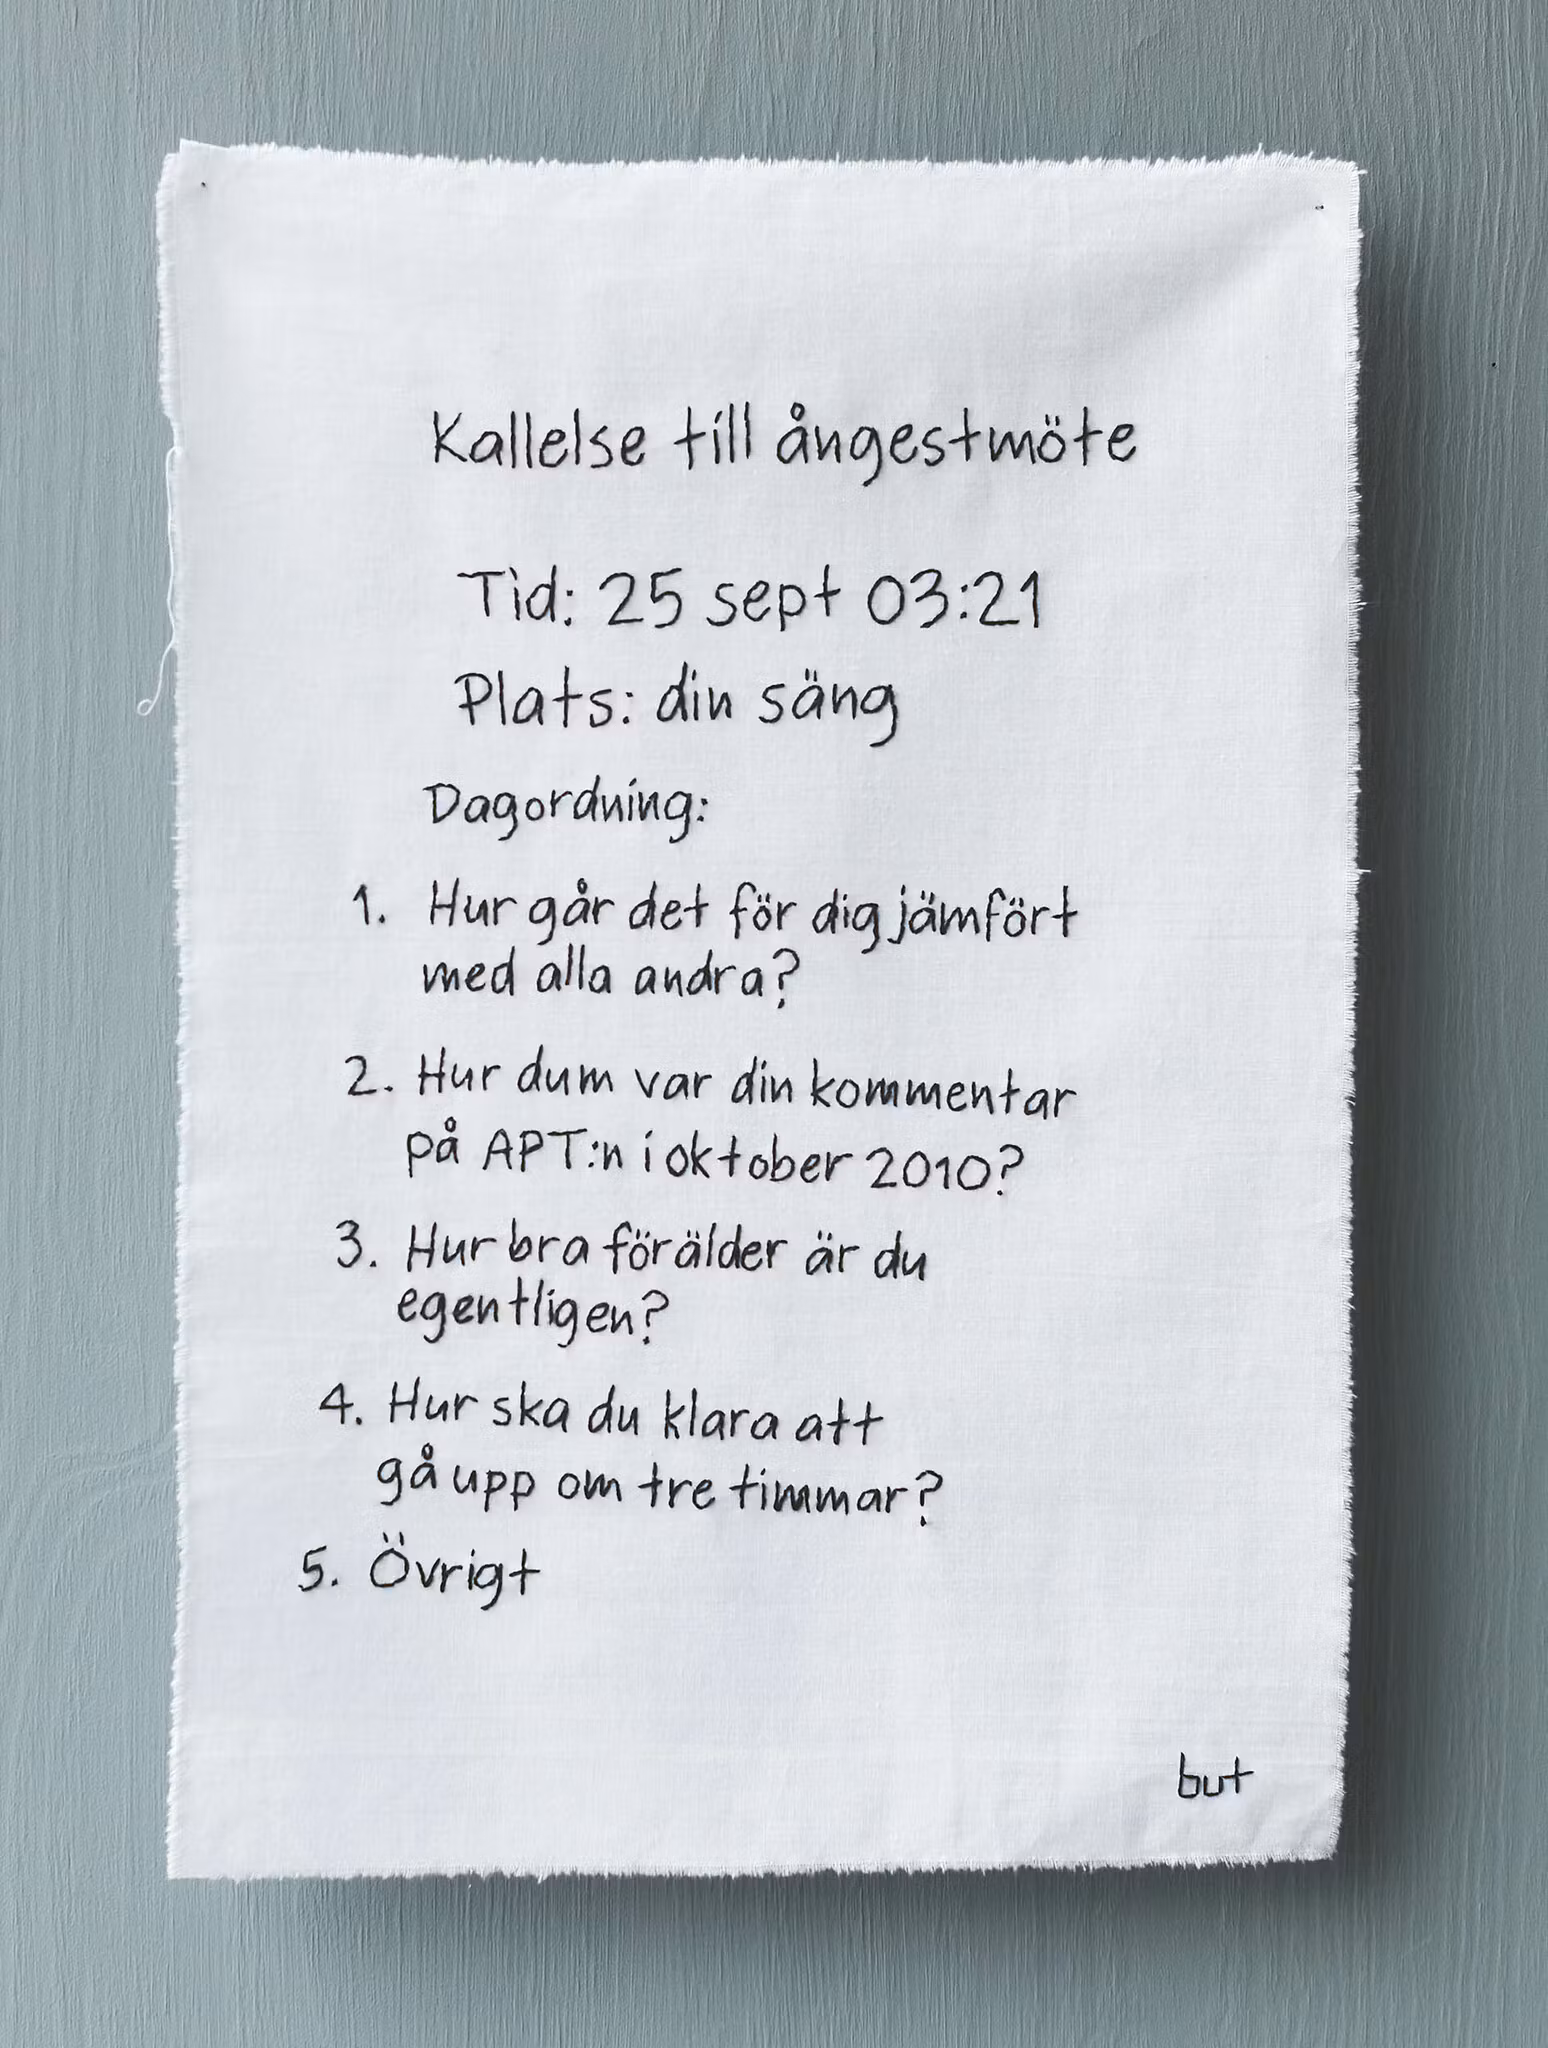 Kallelse till ångestmöte
Tid: 25 sept 03:21
Plats: din säng
Dagordning:
1. Hur går det för dig jämfört
med alla andra?
2. Hur dum var din kommentar
på APT:n i oktober 2010?
3. Hur bra förälder är du
egentligen?
4. Hur ska du klara att
gå upp om tre timmar?
5. Övrigt
but